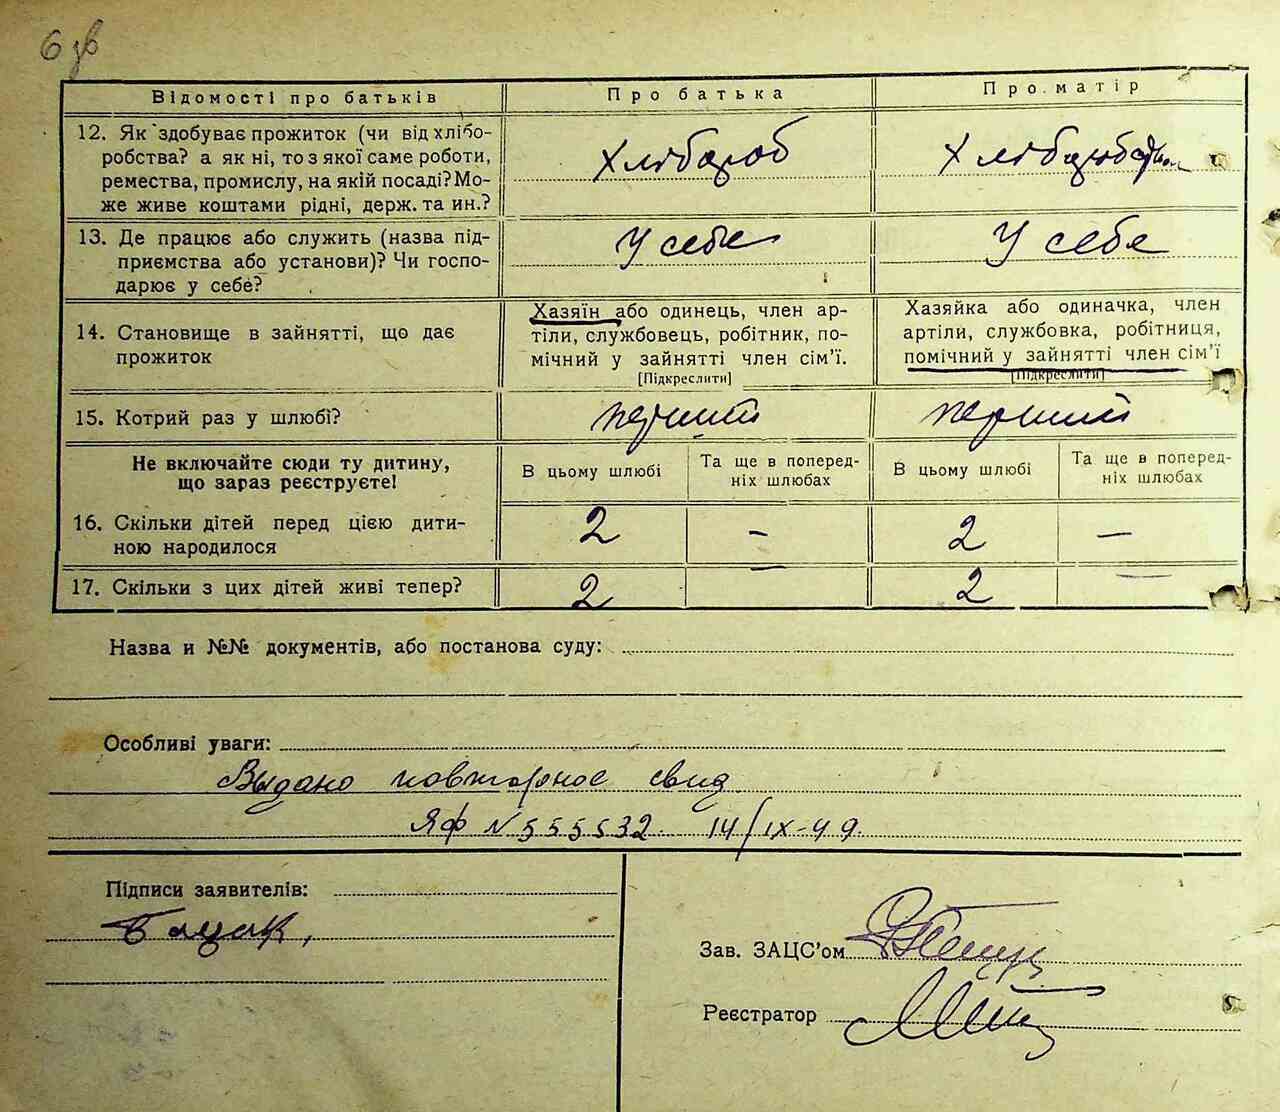 6 зв
Відомості про батьків
Про батька
Про матір
12. Як здобуває прожиток (чи від хлібо-
робства? а як ні, то з якої саме роботи,
ремества, промислу, на якій посаді? Мо-
же живе коштами рідні, держ. та ин.?
Хлібороб
Хлібороб
13. Де працює або служить (назва під-
приємства або установи)? Чи госпо-
дарює у себе?
У себе
У себе
14. Становище в зайнятті, що дає
прожиток
Хазяїн або одинець, член ар-
тіли, службовець, робітник, по-
мічний у зайнятті член сім’ї.
[Підкреслити]
Хазяйка або одиначка, член
артіли, службовка, робітниця,
помічний у зайнятті член сім’ї
[Підкреслити]
15. Котрий раз у шлюбі?
перший
перший
Не включайте сюди ту дитину,
що зараз реєструєте!
В цьому шлюбі
Та ще в поперед-
ніх шлюбах
В цьому шлюбі
Та ще в поперед-
ніх шлюбах
16. Скільки дітей перед цією дити-
ною народилося
2
—
2
—
17. Скільки з цих дітей живі тепер?
2
—
2
—
Назва и №№ документів, або постанова суду:
Особливі уваги:
Выдано повторное свид
ЯФ N 555532. 14/IX-49.
Підписи заявителів:
Зав. ЗАЦС’ом
Реєстратор